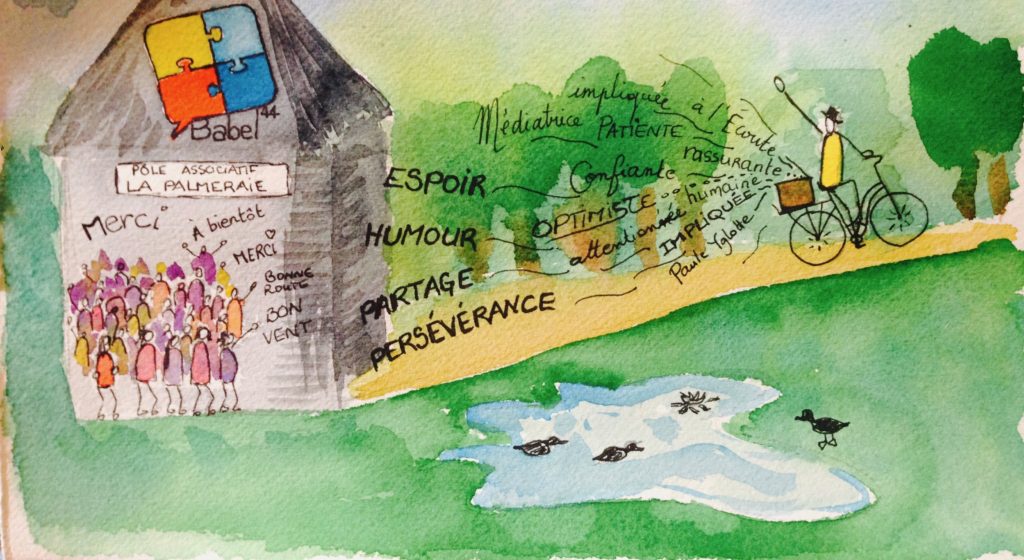 Babel 44
PÔLE ASSOCIATIF
LA PALMERAIE
Merci
À bientôt
MERCI
BONNE
ROUTE
BON
VENT
ESPOIR
HUMOUR
PARTAGE
PERSÉVÉRANCE
impliquée à l'Ecoute
Médiatrice PATIENTE
Confiante rassurante
OPTIMISTE humaine
attentionnée IMPLIQUÉE
Paule Yglotte